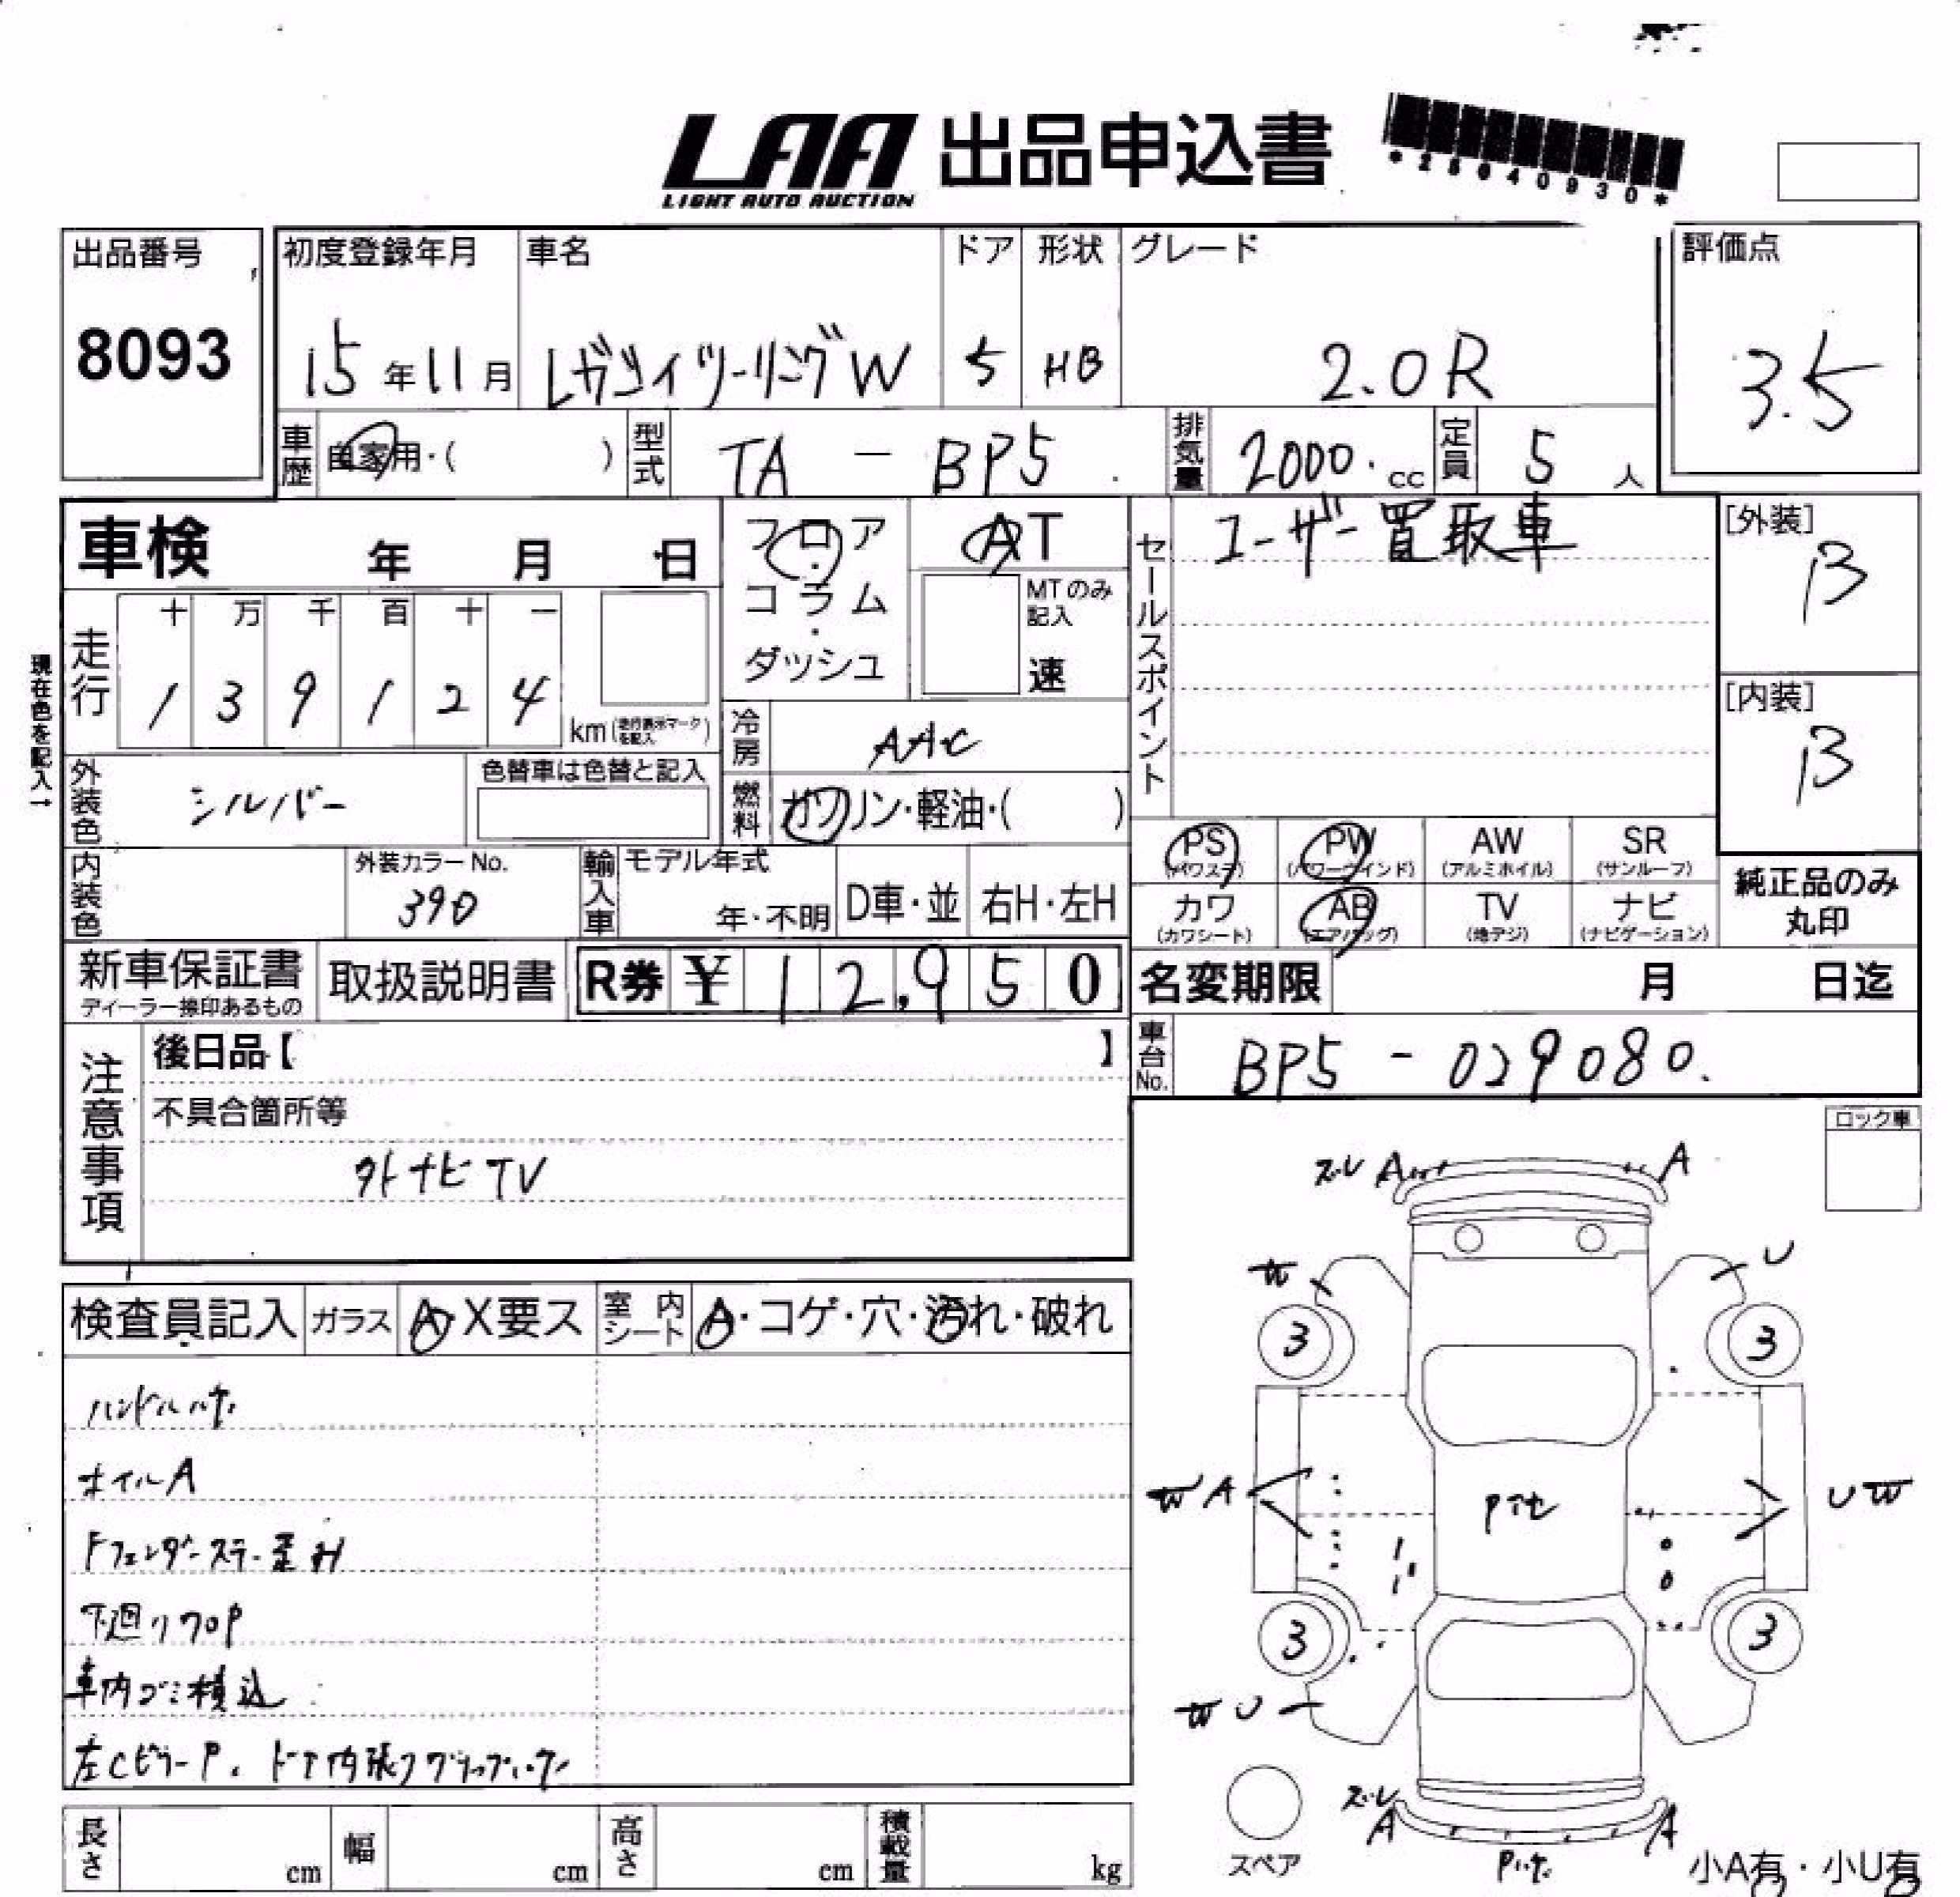 LAA 出品申込書
LIGHT AUTO AUCTION
出品番号
8093
初度登録年月
15年11月
車名
レガシィツーリングW
ドア
5
形状
HB
グレード
2.0R
評価点
3.5
車歴
自家用・( )
型式
TA - BP5
排気量
2000 cc
定員
5 人
車検 年 月 日
フロア・コラム・ダッシュ
AT
MTのみ記入
速
セールスポイント
ユーザー買取車
[外装]
B
[内装]
B
現在色を記入→
走行
十 万 千 百 十 一
1 3 9 1 2 4
km(走行表示マークを記入)
冷房
AAC
外装色
シルバー
色替車は色替と記入
燃料
ガソリン・軽油・( )
PS
(パワステ)
PW
(パワーウインド)
AW
(アルミホイル)
SR
(サンルーフ)
カワ
(カワシート)
AB
(エアバッグ)
TV
(地デジ)
ナビ
(ナビゲーション)
純正品のみ
丸印
内装色
外装カラーNo.
390
輸入車
モデル年式
年・不明
D車・並
右H・左H
新車保証書
ディーラー捺印あるもの
取扱説明書
R券 ¥ 12,950
名変期限 月 日迄
注意事項
後日品【 】
不具合箇所等
外ナビTV
車台No.
BP5 - 029080.
ロック車
検査員記入
ガラス
A・X要ス
室内シート
A・コゲ・穴・汚れ・破れ
オイルA
下廻りサビ
車内ゴミ積込
A
A
W
U
3
3
W A
U W
3
3
W U
A
A
スペア
小A有・小U有
長さ cm
幅 cm
高さ cm
積載量 kg